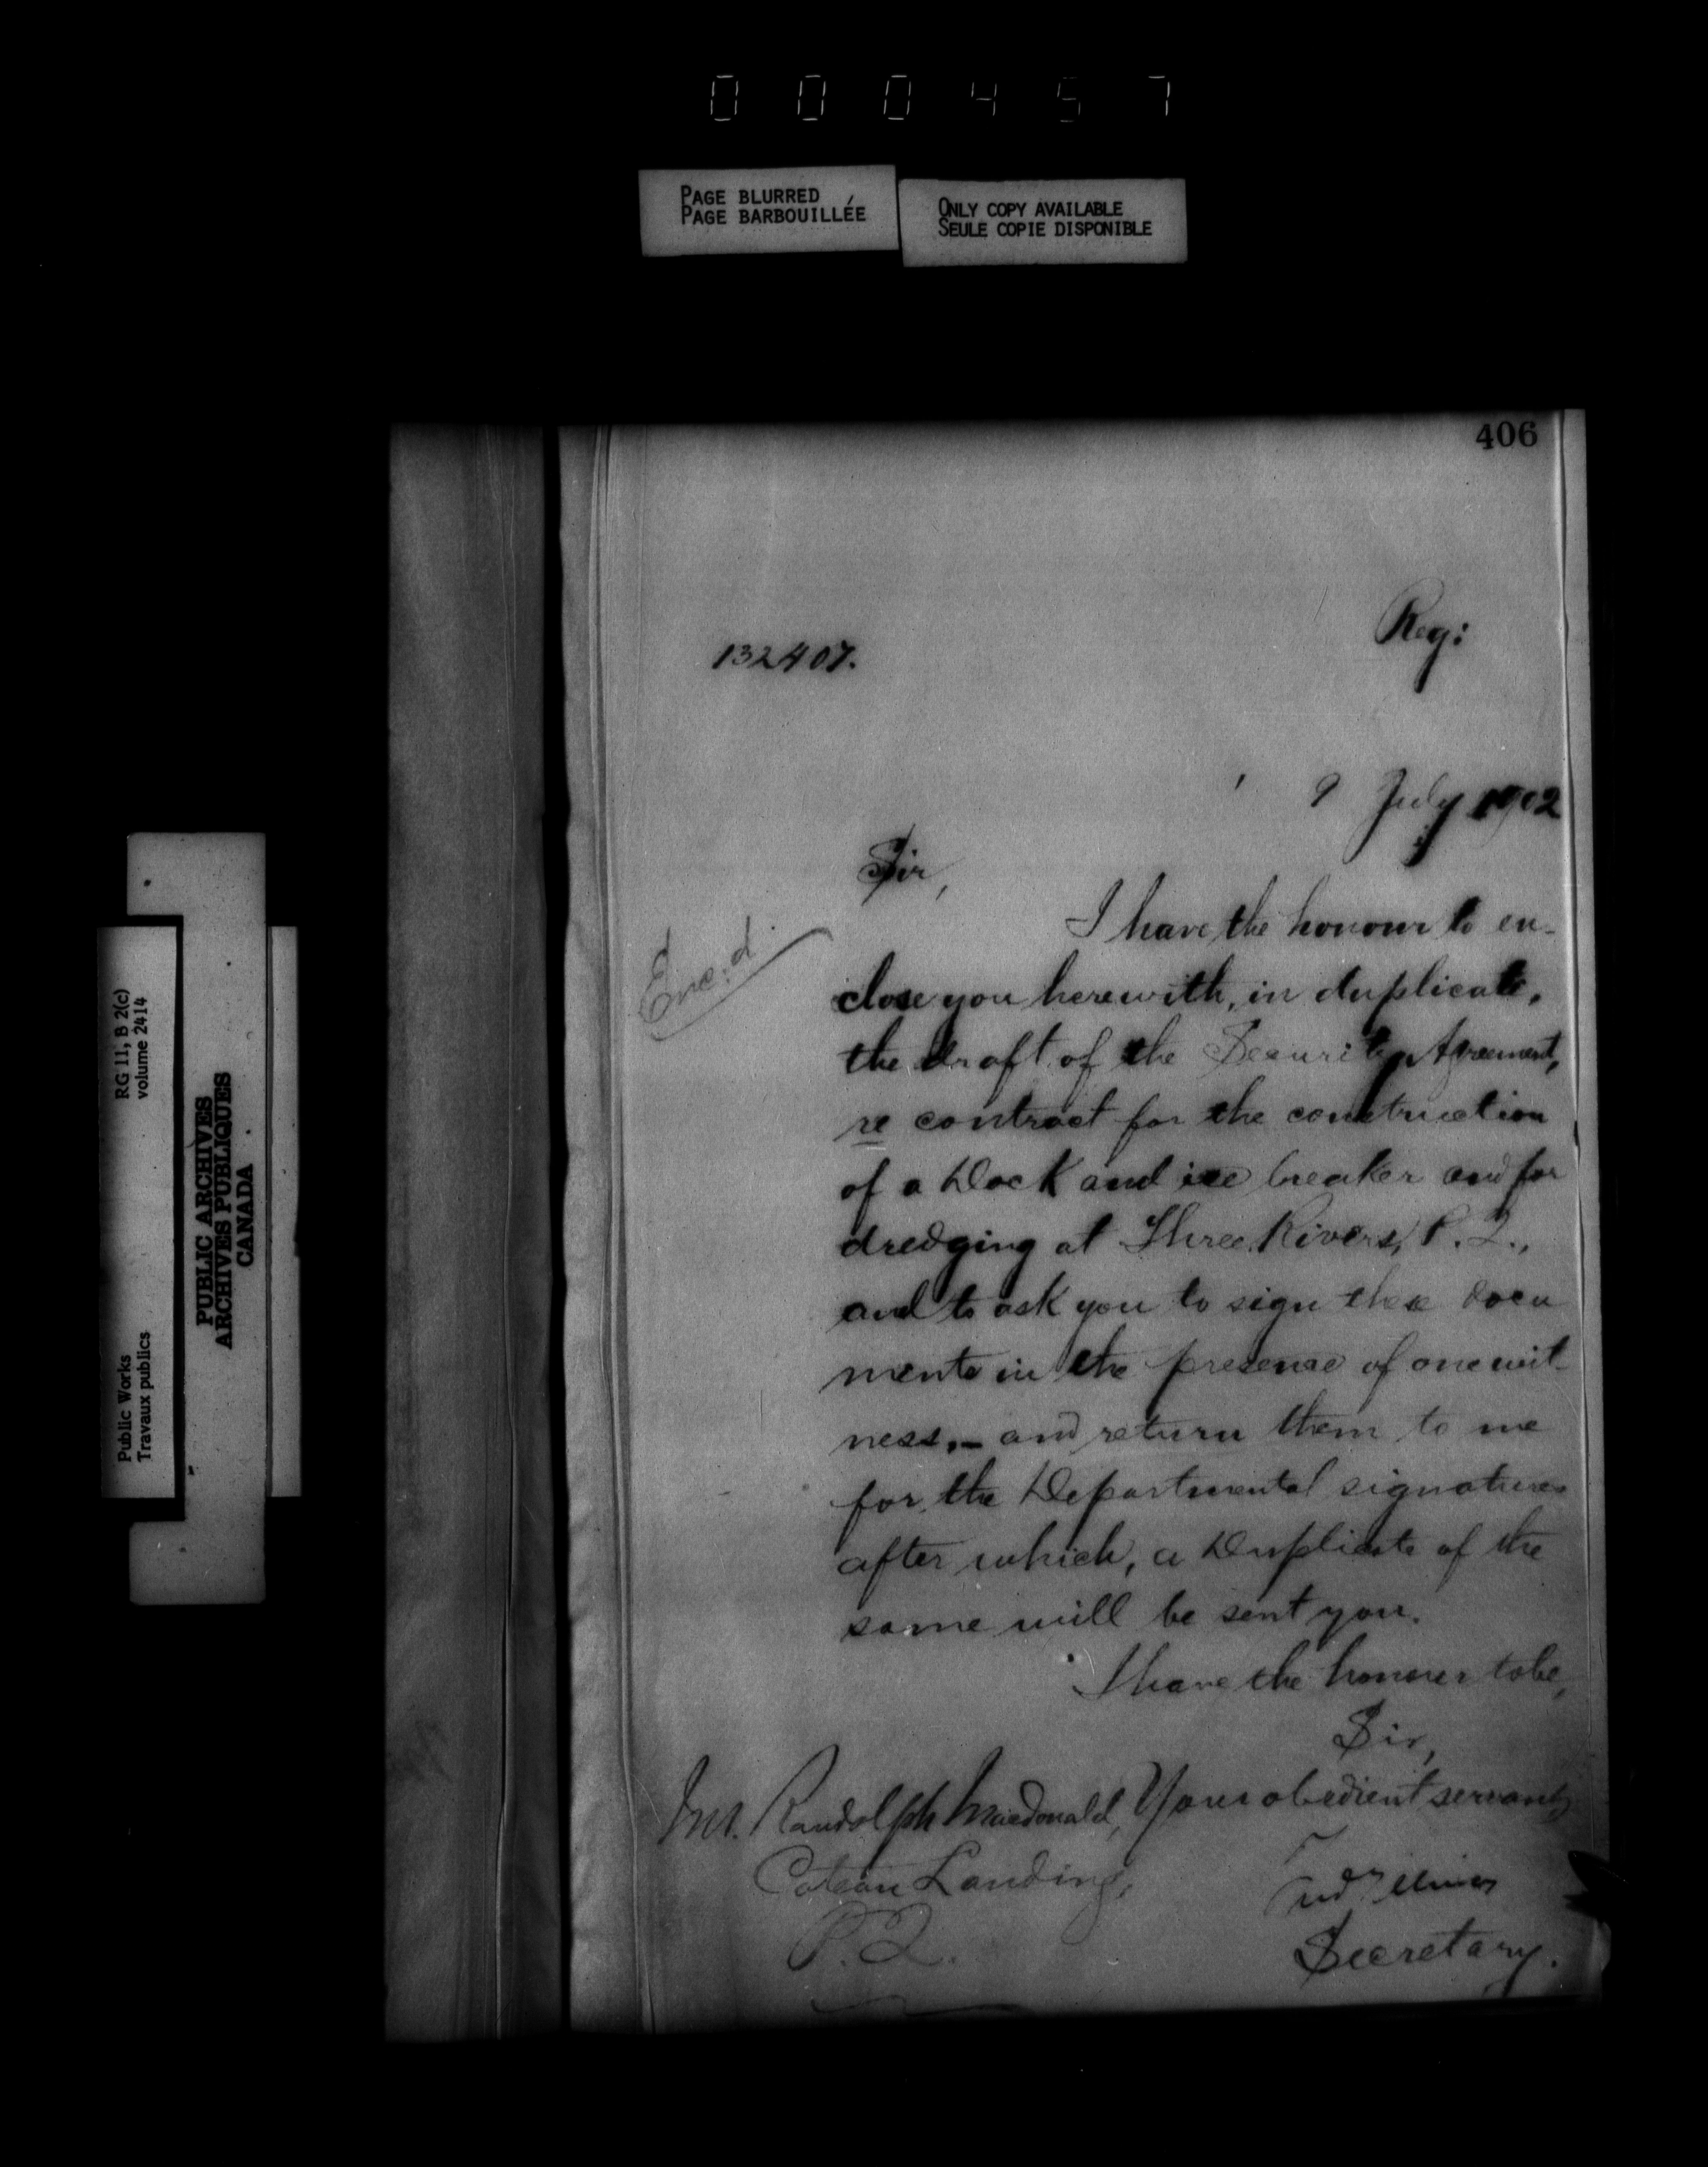 000457
PAGE BLURRED
PAGE BARBOUILLÉE
ONLY COPY AVAILABLE
SEULE COPIE DISPONIBLE
406
Reg:
132407.
9 July 1902
Sir,
I have the honour to en-
Enc:d.
close you herewith, in duplicate,
the draft of the Security Agreement,
re contract for the construction
of a Dock and ice breaker and for
dredging at Three Rivers, P.Q.,
and to ask you to sign these docu
ments in the presence of one wit-
ness,- and return them to me
for the Departmental signatures
after which, a Duplicate of the
same will be sent you.
I have the honour to be,
Sir,
Mr. Randolph Macdonald, Your obedient servant,
Coteau Landing,
P.Q.
Secretary.
RG 11, B 2(c)
volume 2414
Public Works
Travaux publics
PUBLIC ARCHIVES
ARCHIVES PUBLIQUES
CANADA